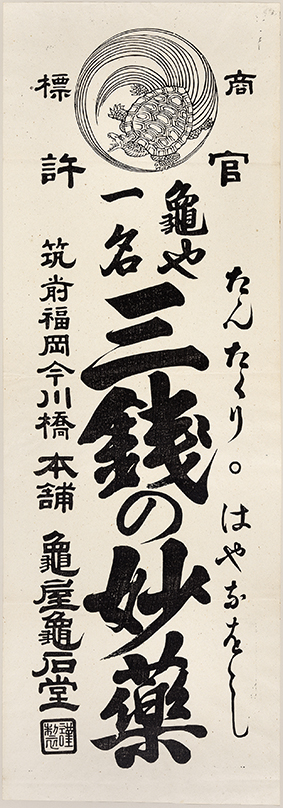 商標
官許
たんたくり。はやなをし
龜や
一名
三銭の妙藥
筑前福岡今川橋 本舗 龜屋龜石堂
謹製